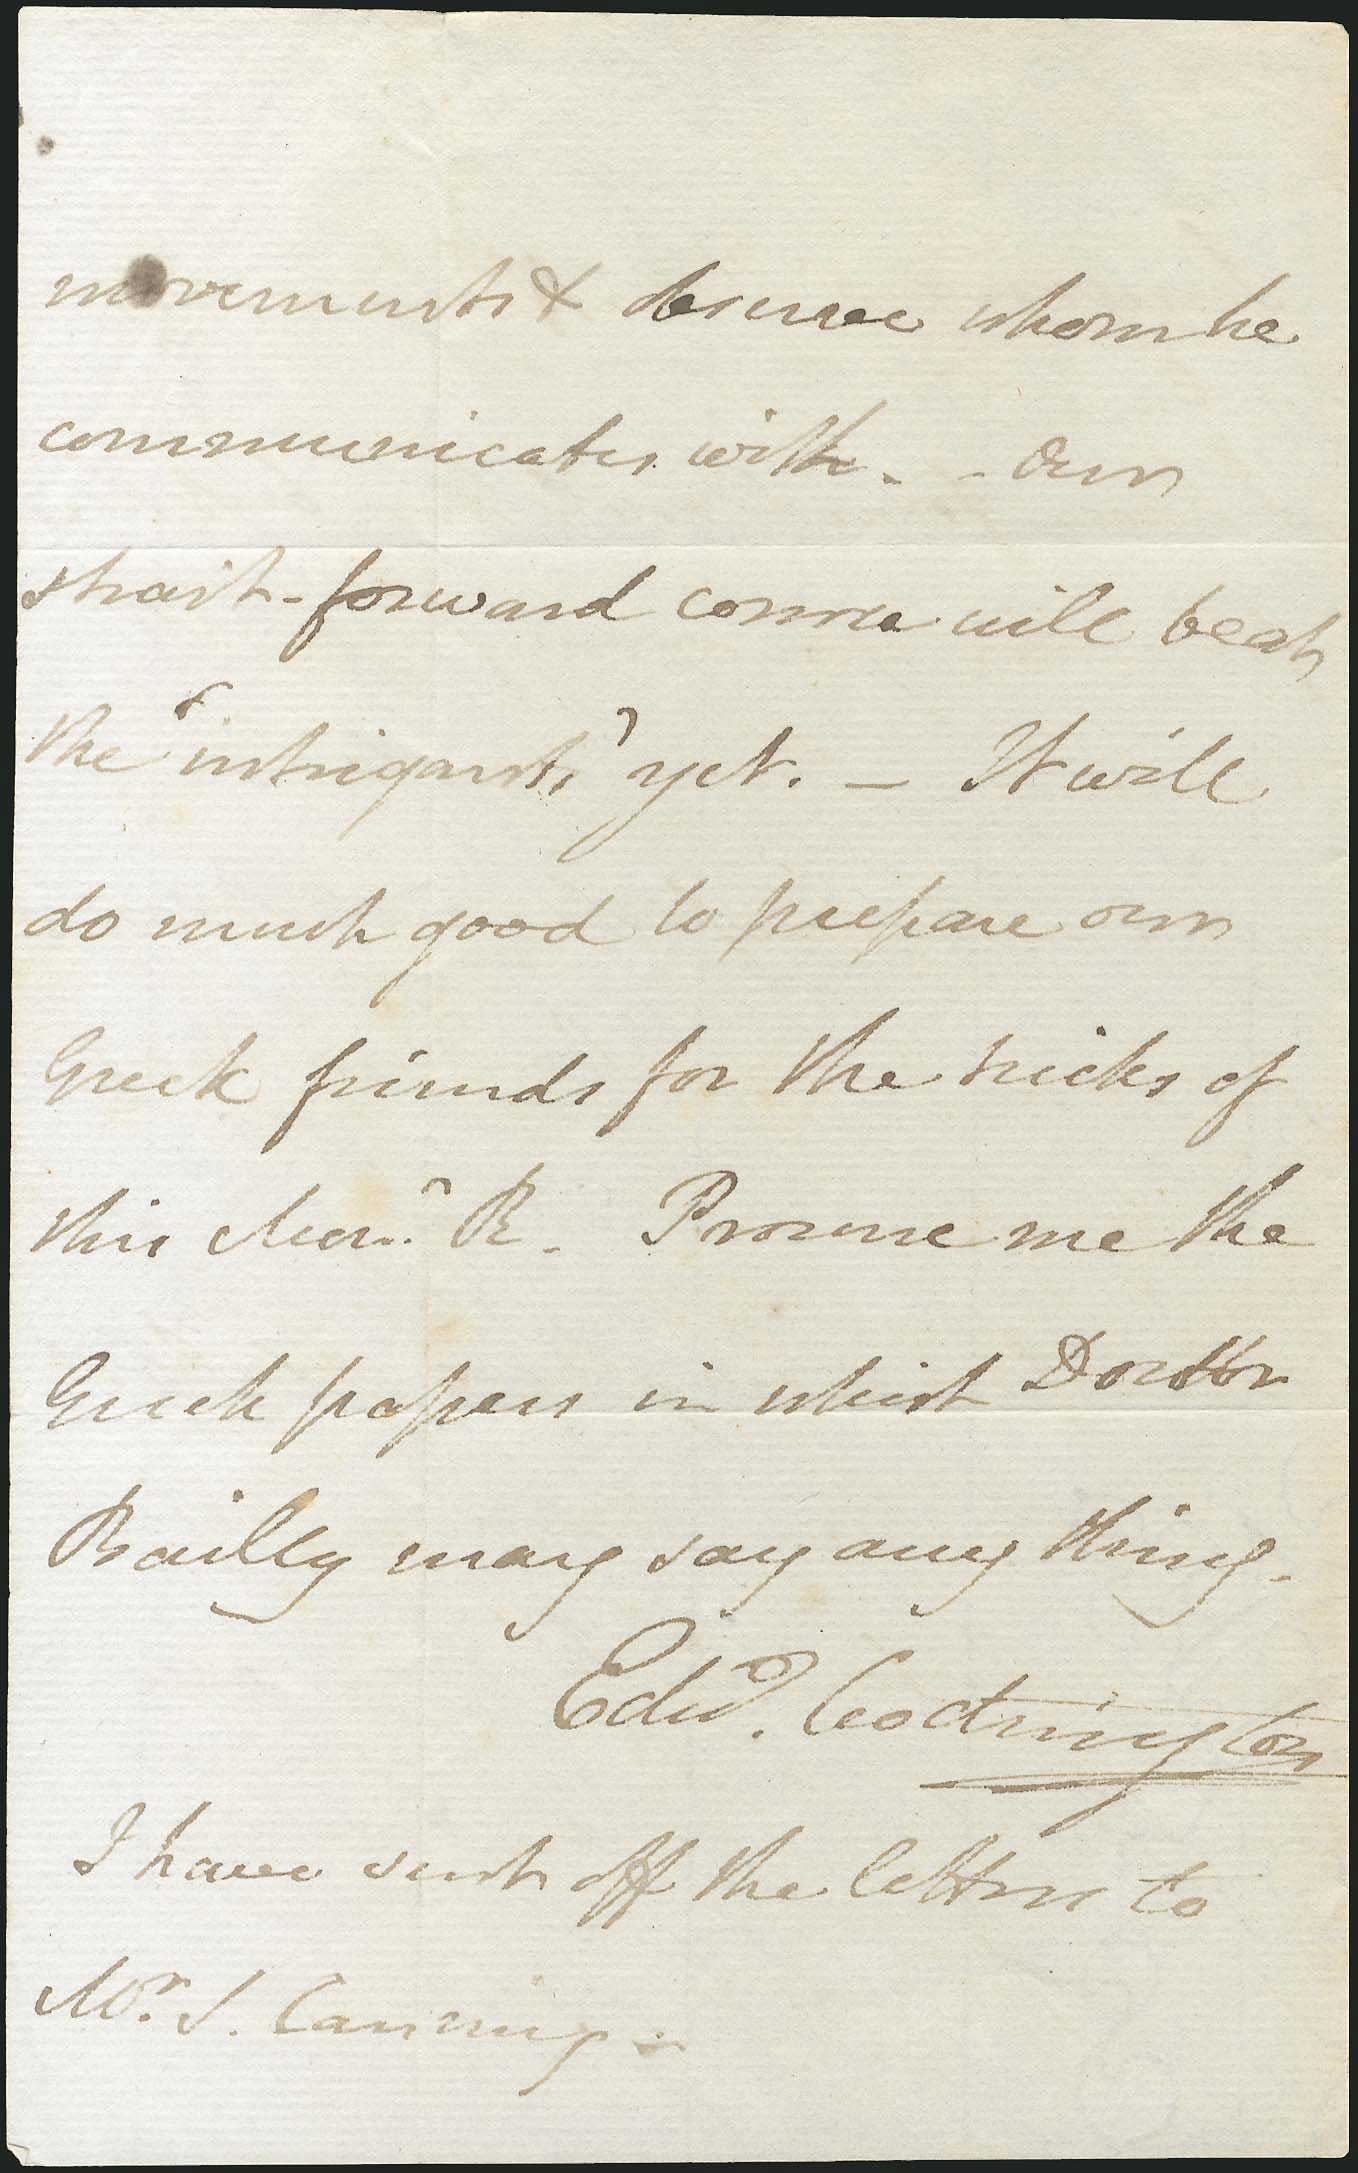 movements & observe whom he
communicates with. - Our
strait-forward course will beat
the "intrigants" yet. — It will
do much good to prepare our
Greek friends for the tricks of
this Monr. R. Procure me the
Greek papers in which Doctor
Bailly may say any thing.
Edwd. Codrington
I have sent off the letters to
Mr. S. Canning -